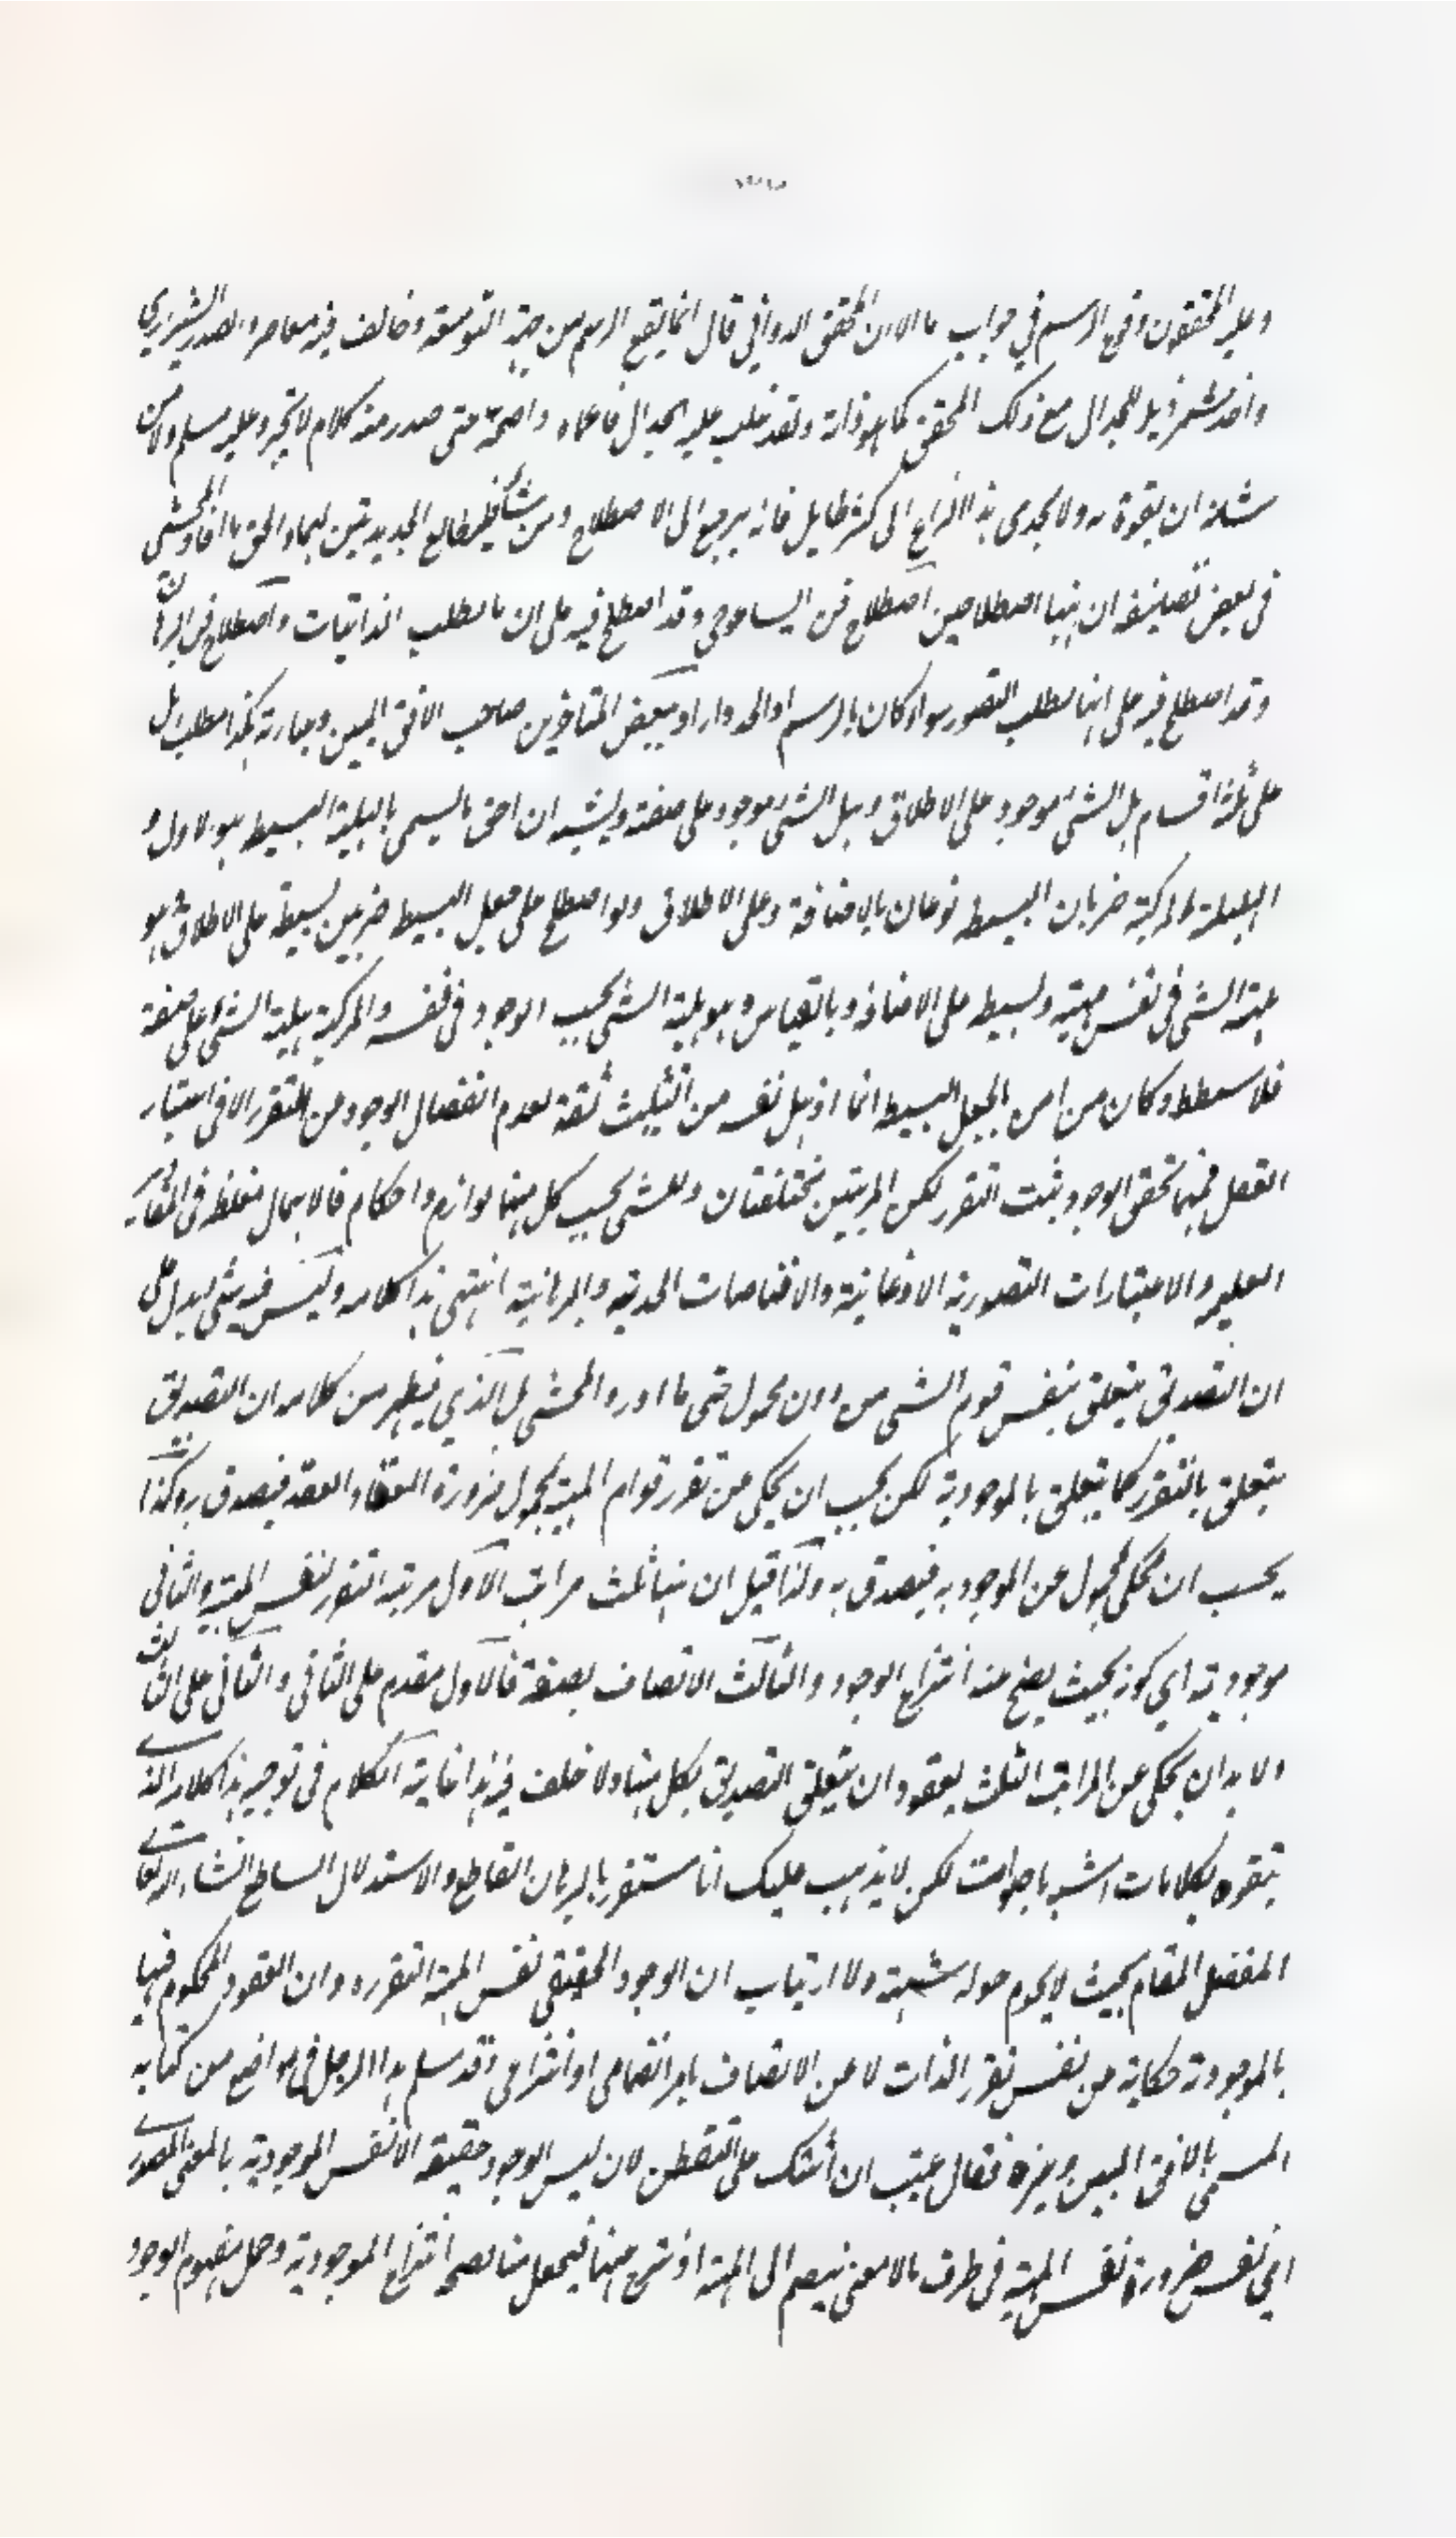 وعليه المحققون وقوع الرسم في جواب ما الا ان المحقق الدواني قال انما يقع الرسم من جهة التوسعة وخالف فيه معاصره الصدر الشيرازي
واخذ يشمر ذيل للجدال مع ذلك المحقق كما هو ذاته ولقد غلب عليه الجدال فاعماه واصمه حتى صدر منه كلام لا يجترء عليه مسلم ولا من
شانه ان يتفوه به ولا يجدى هذا النزاع الى كثير طايل فانه يرجع الى الاصطلاح ومن شاء فليطالع الجديديتين لهما والحق ما افاد المحشي
في بعض تصانيفه ان ههنا اصطلاحين اصطلاح فن ايساغوجي وقد اصطلح فيه على ان ما لطلب الذاتيات واصطلاح فن البرهان
وقد اصطلح فيه على انها لطلب التصور سواء كان بالرسم او الحد واراد ببعض المتاخرين صاحب الافق المبين وعبارته هكذا مطلب هل
على ثلثة اقسام هل الشيء موجود على الاطلاق وهل الشيء موجود على صفة ويشبه ان احق ما يسمى بالهلية البسيط هو الاول و
الهلية المركبة ضربان البسيط نوعان بالاضافة وعلى الاطلاق ولو اصطلح على جعل البسيط ضربين بسيط على الاطلاق هو
هلية الشيء في نفس مهيته وبسيط على الاضافة وبالقياس وهو هلية الشيء بحسب الوجود في نفسه والمركبة هلية الشيء على صفة
فلا سطط وكان من امن بالجعل البسيط انما اذهل نفسه من التثليث ثقة لعدم انفصال الوجود من التقرر الا في اعتبار
العقل فمهما تحقق الوجود ثبت التقرر لكن المرتبتين مختلفتان وللشيء بحسب كل منهما لوازم واحكام فالاهمال مغلظ في المقاييس
العلمية والاعتبارات التصورية الاذعانية والاقتناصات الحدية والبرهانية انتهى هذا كلامه وليس فيه شيء يدل على
ان التصديق يتعلق بنفس قوم الشيء من دون محمول حتى ما اورد المحشي بل الذي يظهر من كلامه ان التصديق
يتعلق بالتقرر كما يتعلق بالموجودية لكن يجب ان يحكى من تقرر قوام المهية بمحمول ضرورة العقاد العقد فيصدق به وكذا
يحسب ان يحكى بمحمول عن الموجودية فيصدق به ولذا قيل ان ههنا ثلث مراتب الاول مرتبة التقرر لنفس المهية والثاني
موجودية اي كونه بحيث يصح منه انتزاع الوجود والثالث الاتصاف بصفة فالاول مقدم على الثاني والثاني على الثالث
ولا بد ان يحكى عن المراتب الثلث بعقود وان يتعلق التصديق بكل منها ولا خلف فيه هذا غاية الكلام في توجيه هذا كلامه الذي
يتفوه بكلامات اشبه باصوات لكن لا يذهب عليك انا سنقرر بالبرهان القاطع والاستدلال الساطع انشاء الله تعالى
المفضل المقام بحيث لا يحوم حوله شبهة ولا ارتياب ان الوجود الحقيقي نفس المهية المتقرره وان العقود المحكوم فيها
بالموجودية حكاية من نفس تقرر الذات لا عن الاتصاف بامر انضمامي او انتزاعي وقد سلم هذا الرجل في مواضع من كتابه
المسمى بالافق المبين وغيره فقال عجيب ان أشك على التفطن لان ليس الوجود حقيقة الا نفس الموجودية بالمعنى المصدري
اي نفس ضرورة نفس المهية في ظرف ما لا معنى ينضم الى المهية او ينتزع منها فيجعل مناط صحة انتزاع الموجودية وحمل مفهوم الوجود